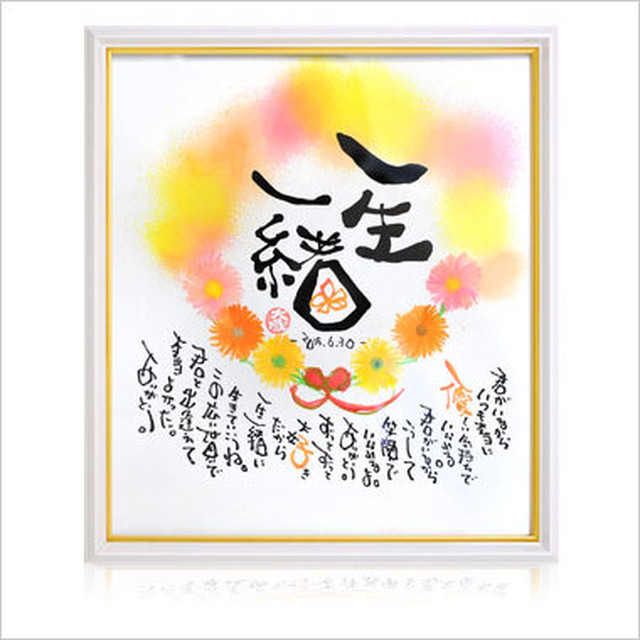 一生
一緒
-2015.6.30-
君がいるから
いつも本当に
優しい気持ちで
いられる。
君がいるから
こうして
笑顔で
いられるよ。
ありがとう。
ずっとずっと
大好き
だから
一生一緒に
生きていこうね。
この広い世界で
君と出逢えて
本当
よかった。
ありがとう。